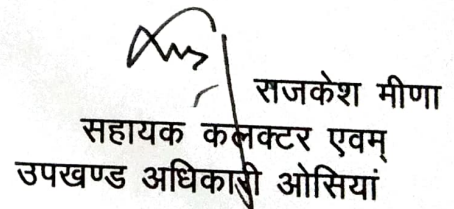 राजकेश मीणा
सहायक कलक्टर एवम्
उपखण्ड अधिकारी ओसियां